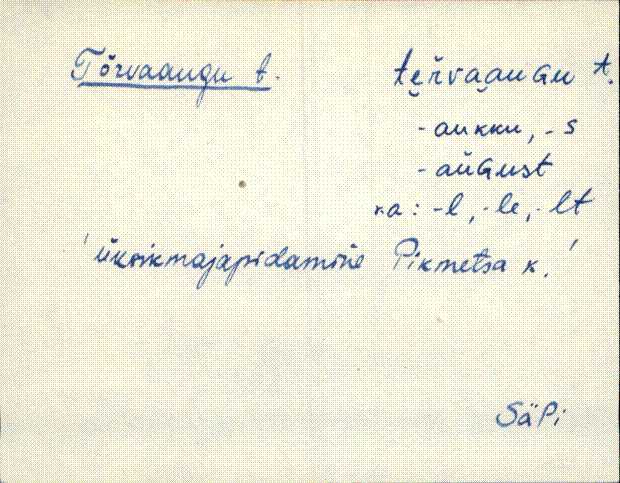 Tõrvaaugu t. te̮ŕvàauGu t.
-aukku, -s
-aùGust
ka: -l, -le, -lt
'üksikmajapidamine Pikmetsa k.'
SäPi